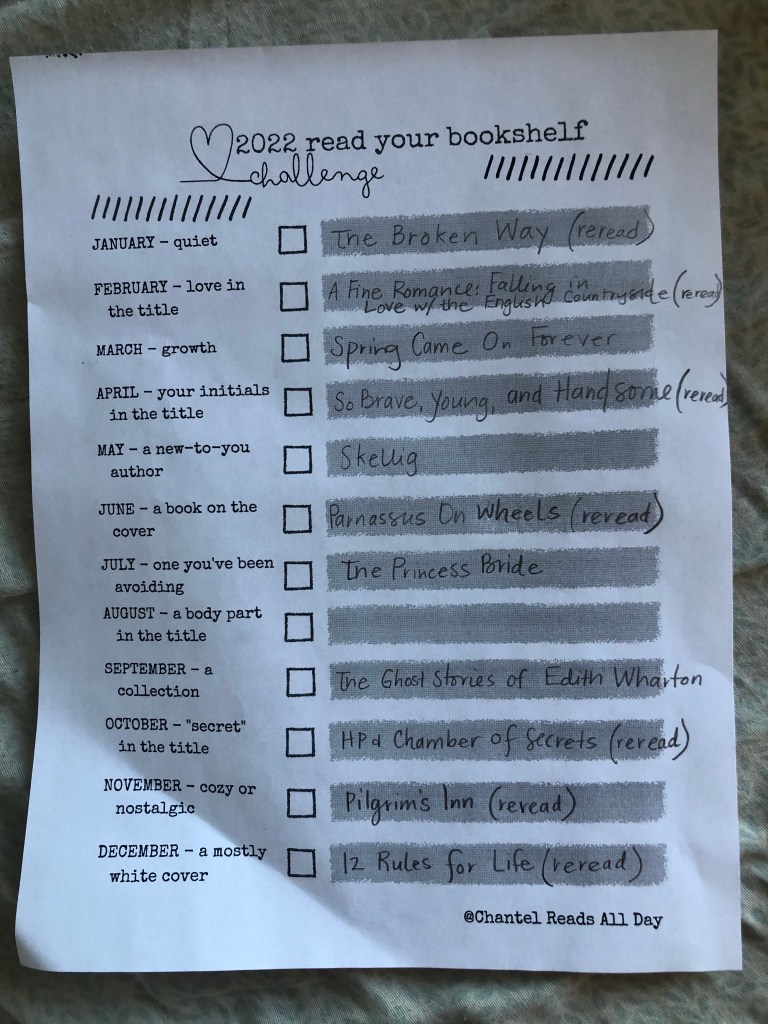 2022 read your bookshelf
challenge
JANUARY – quiet
The Broken Way (reread)
FEBRUARY – love in
the title
A Fine Romance: Falling in
Love w/ the English Countryside (reread)
MARCH – growth
Spring Came On Forever
APRIL – your initials
in the title
So Brave, Young, and Handsome (reread)
MAY – a new-to-you
author
Skellig
JUNE – a book on the
cover
Parnassus On Wheels (reread)
JULY – one you've been
avoiding
The Princess Bride
AUGUST – a body part
in the title
SEPTEMBER – a
collection
The Ghost Stories of Edith Wharton
OCTOBER – "secret"
in the title
HP & Chamber of Secrets (reread)
NOVEMBER – cozy or
nostalgic
Pilgrim's Inn (reread)
DECEMBER – a mostly
white cover
12 Rules for Life (reread)
@Chantel Reads All Day